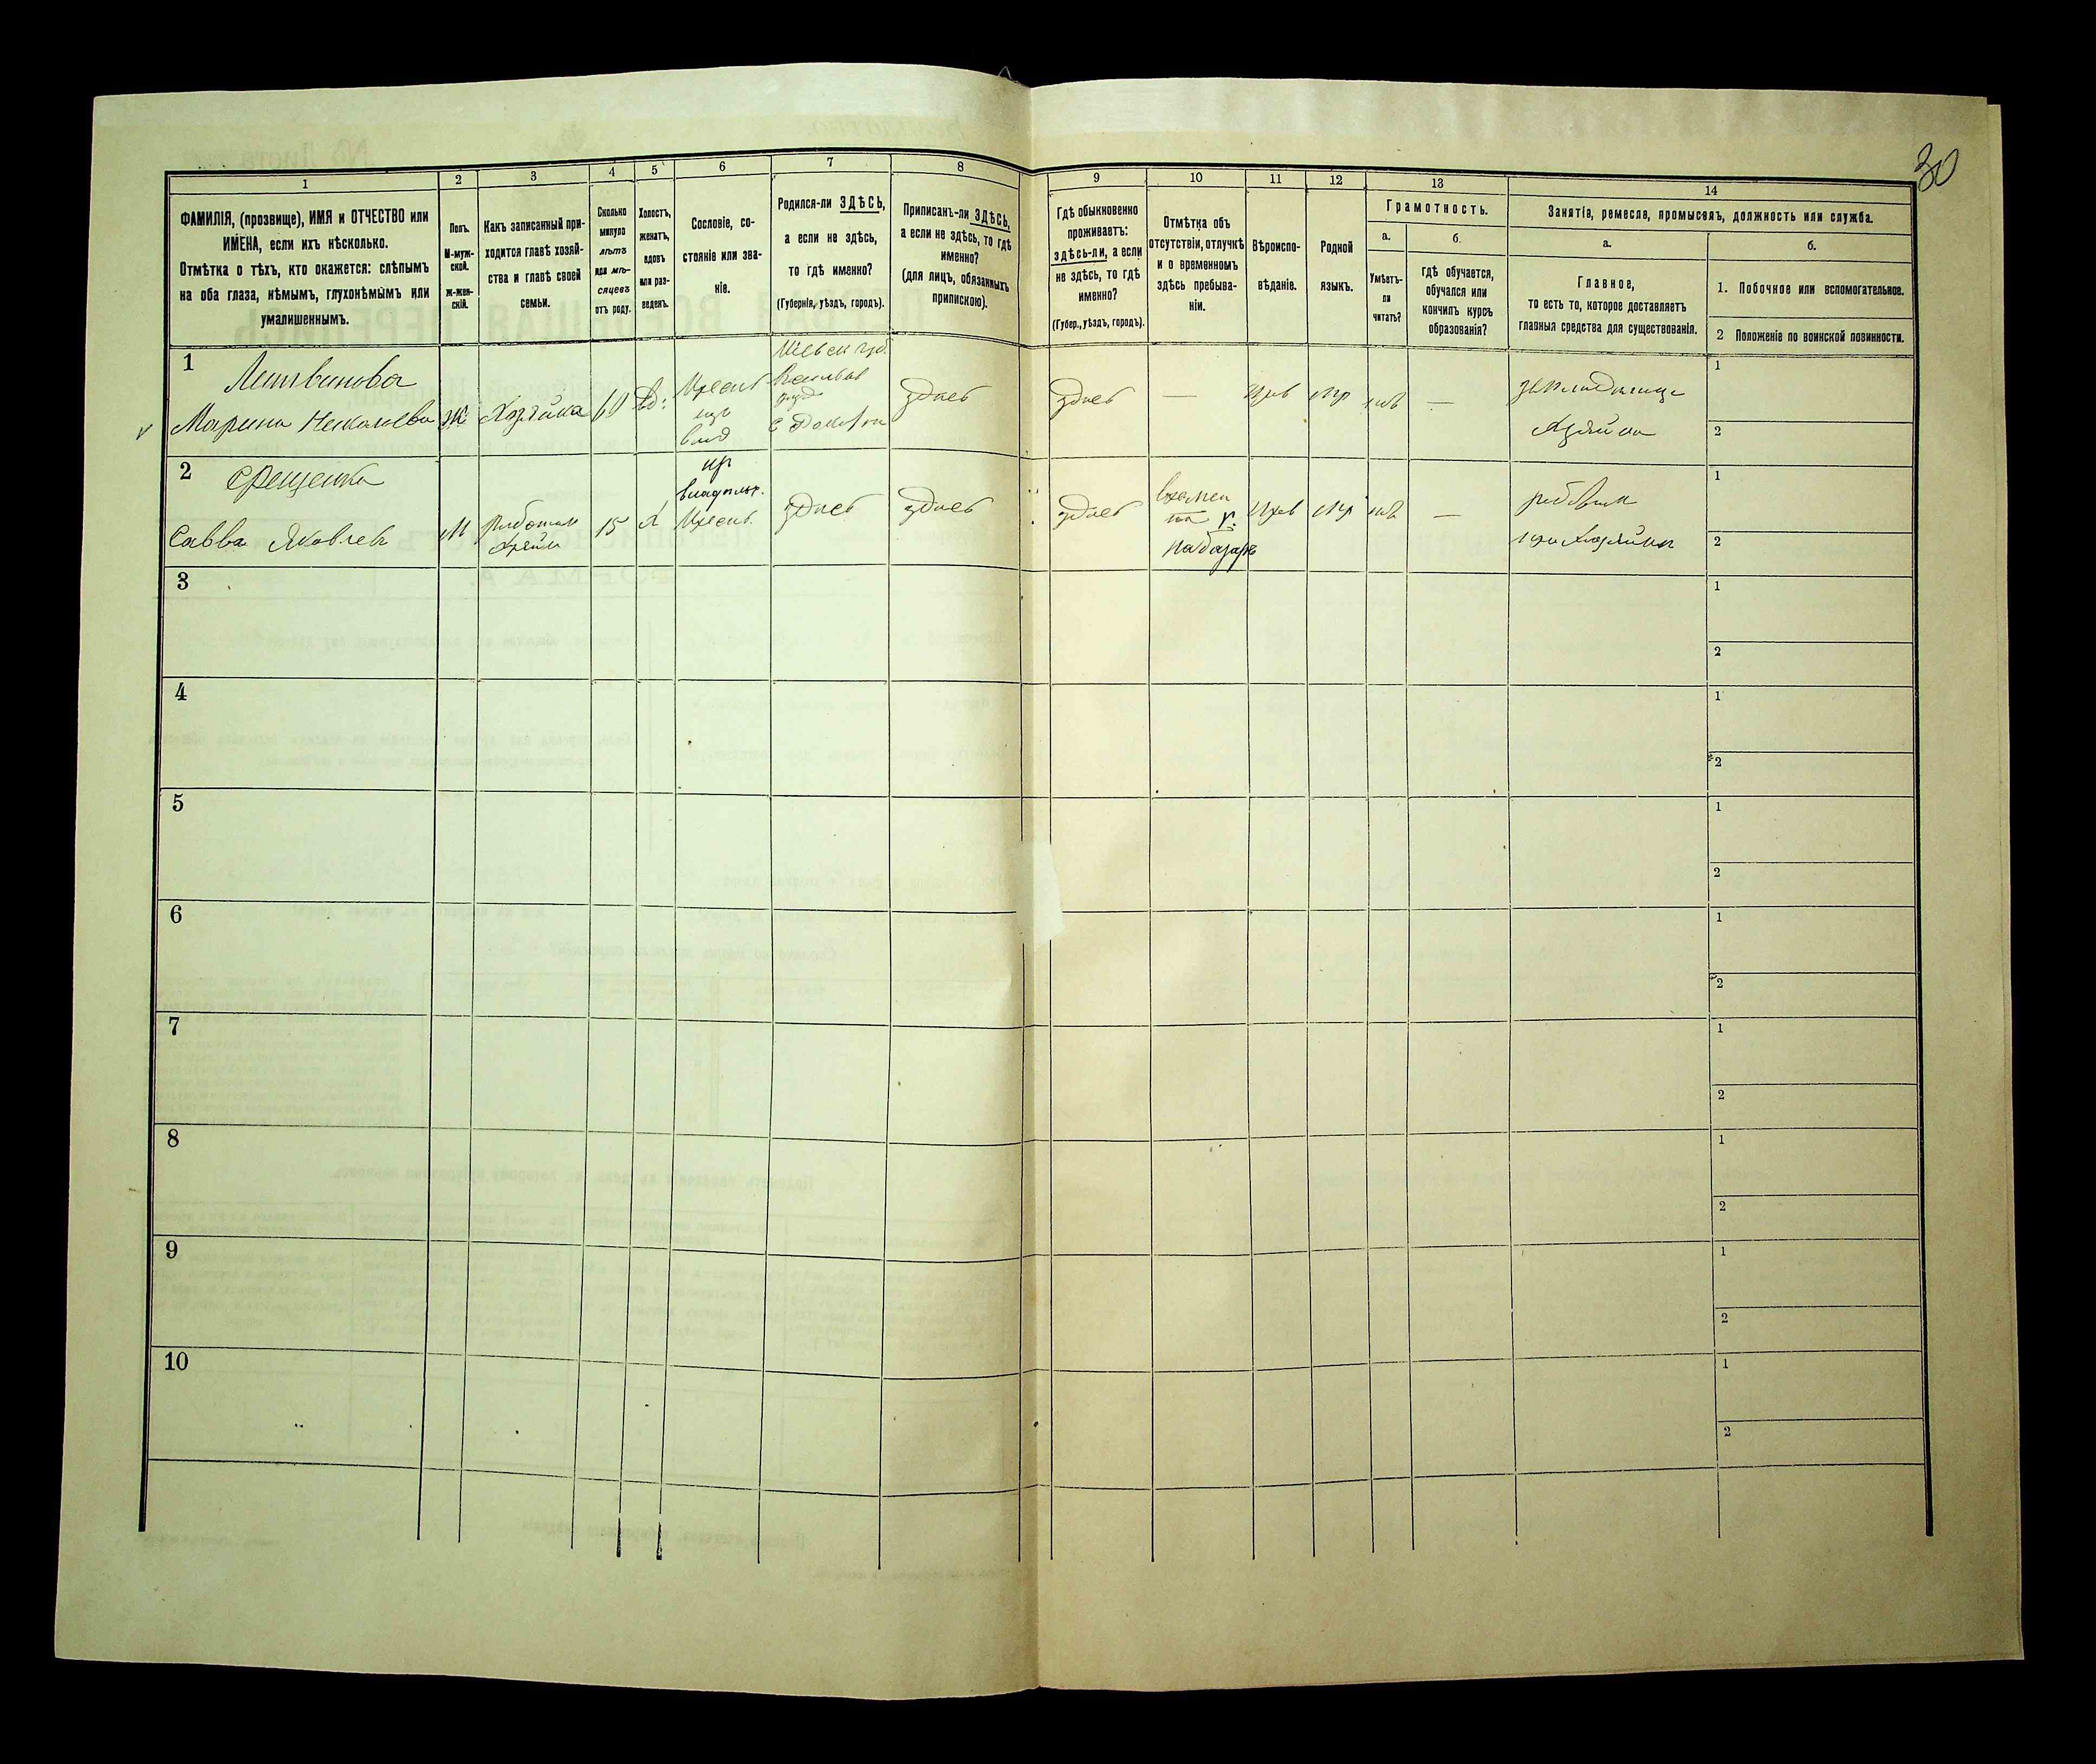 30
1
2
3
4
5
6
7
8
9
10
11
12
13
14
ФАМИЛІЯ, (прозвище), ИМЯ и ОТЧЕСТВО или
ИМЕНА, если ихъ нѣсколько.
Отмѣтка о тѣхъ, кто окажется: слѣпымъ
на оба глаза, нѣмымъ, глухонѣмымъ или
умалишеннымъ.
Полъ.
М-муж-
ской.
Ж-жен-
скій.
Какъ записанный при-
ходится главѣ хозяй-
ства и главѣ своей
семьи.
Сколько
минуло
лѣтъ
или мѣ-
сяцевъ
отъ роду.
Холостъ,
женатъ,
вдовъ
или раз-
веденъ.
Сословіе, со-
стояніе или зва-
ніе.
Родился-ли ЗДѢСЬ,
а если не здѣсь,
то гдѣ именно?
(Губернія, уѣздъ, городъ).
Приписанъ-ли ЗДѢСЬ,
а если не здѣсь, то гдѣ
именно?
(для лицъ, обязанныхъ
припискою).
Гдѣ обыкновенно
проживаетъ:
здѣсь-ли, а если
не здѣсь, то гдѣ
именно?
(Губер., уѣздъ, городъ).
Отмѣтка объ
отсутствіи, отлучкѣ
и о временномъ
здѣсь пребыва-
ніи.
Вѣроиспо-
вѣданіе.
Родной
языкъ.
Грамотность.
а.
Умѣетъ-
ли
читать?
б.
гдѣ обучается,
обучался или
кончилъ курсъ
образованія?
Занятіе, ремесло, промыселъ, должность или служба.
а.
Главное,
то есть то, которое доставляетъ
главныя средства для существованія.
б.
1. Побочное или вспомогательное.
2 Положеніе по воинской повинности.
1
Литвинова
Марина Николаева
Ж
Хозяйка
60
Вд:
Крест
изъ
влад
Кіевск губ.
Васильк
уезд
здѣсь
здѣсь
—
—
Хозяйка
1
2
2
Савва Яковлев
М
15
Х
владѣльч.
Крест.
здѣсь
здѣсь
здѣсь
—
1
2
3
1
2
4
1
2
5
1
2
6
1
2
7
1
2
8
1
2
9
1
2
10
1
2